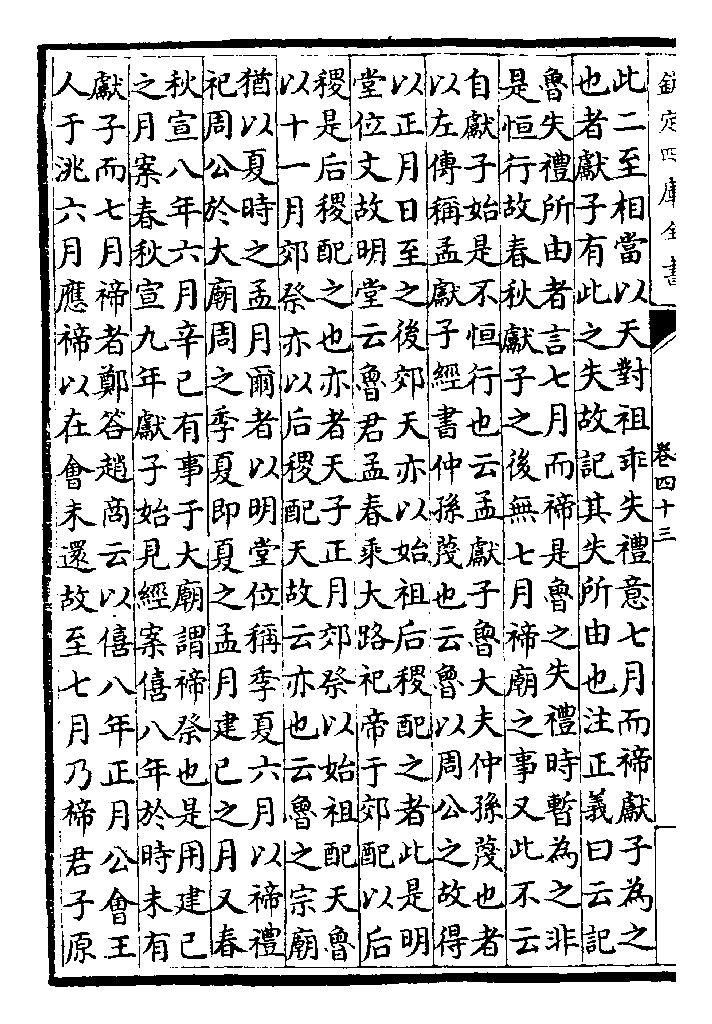 欽定四庫全書
卷四十三
此二至相當以天對祖乖失禮意七月而禘獻子為之
也者獻子有此之失故記其失所由也注正義曰云記
魯失禮所由者言七月而禘是魯之失禮時暫為之非
是恒行故春秋獻子之後無七月禘廟之事又此不云
自獻子始是不恒行也云孟獻子魯大夫仲孫蔑也者
以左傳稱孟獻子經書仲孫蔑也云魯以周公之故得
以正月日至之後郊天亦以始祖后稷配之者此是明
堂位文故明堂云魯君孟春乘大路祀帝于郊配以后
稷是后稷配之也亦者天子正月郊祭以始祖配天魯
以十一月郊祭亦以后稷配天故云亦也云魯之宗廟
猶以夏時之孟月爾者以明堂位稱季夏六月以禘禮
祀周公於大廟周之季夏即夏之孟月建巳之月又春
秋宣八年六月辛巳有事于大廟謂禘祭也是用建巳
之月案春秋宣九年獻子始見經案僖八年於時未有
獻子而七月禘者鄭答趙商云以僖八年正月公會王
人于洮六月應禘以在會未還故至七月乃禘君子原